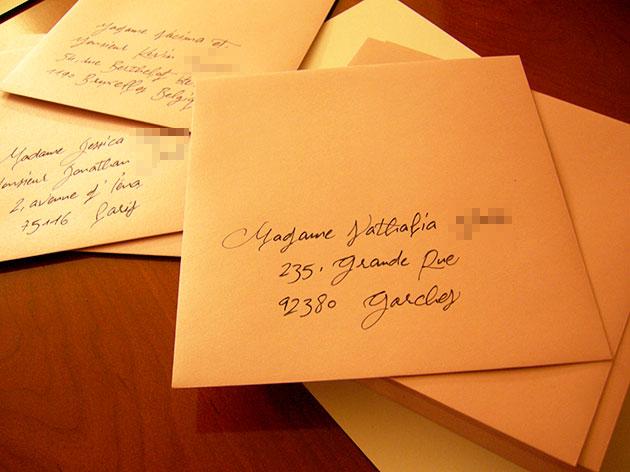 Madame Nacima et
Monsieur Kévin
54, rue Berthelot
1190 Bruxelles Belgiq
Madame Jessica
Monsieur Jonathan
2, avenue d'Iéna
75116 Paris
Madame Nathalia
235, Grande Rue
92380 Garches